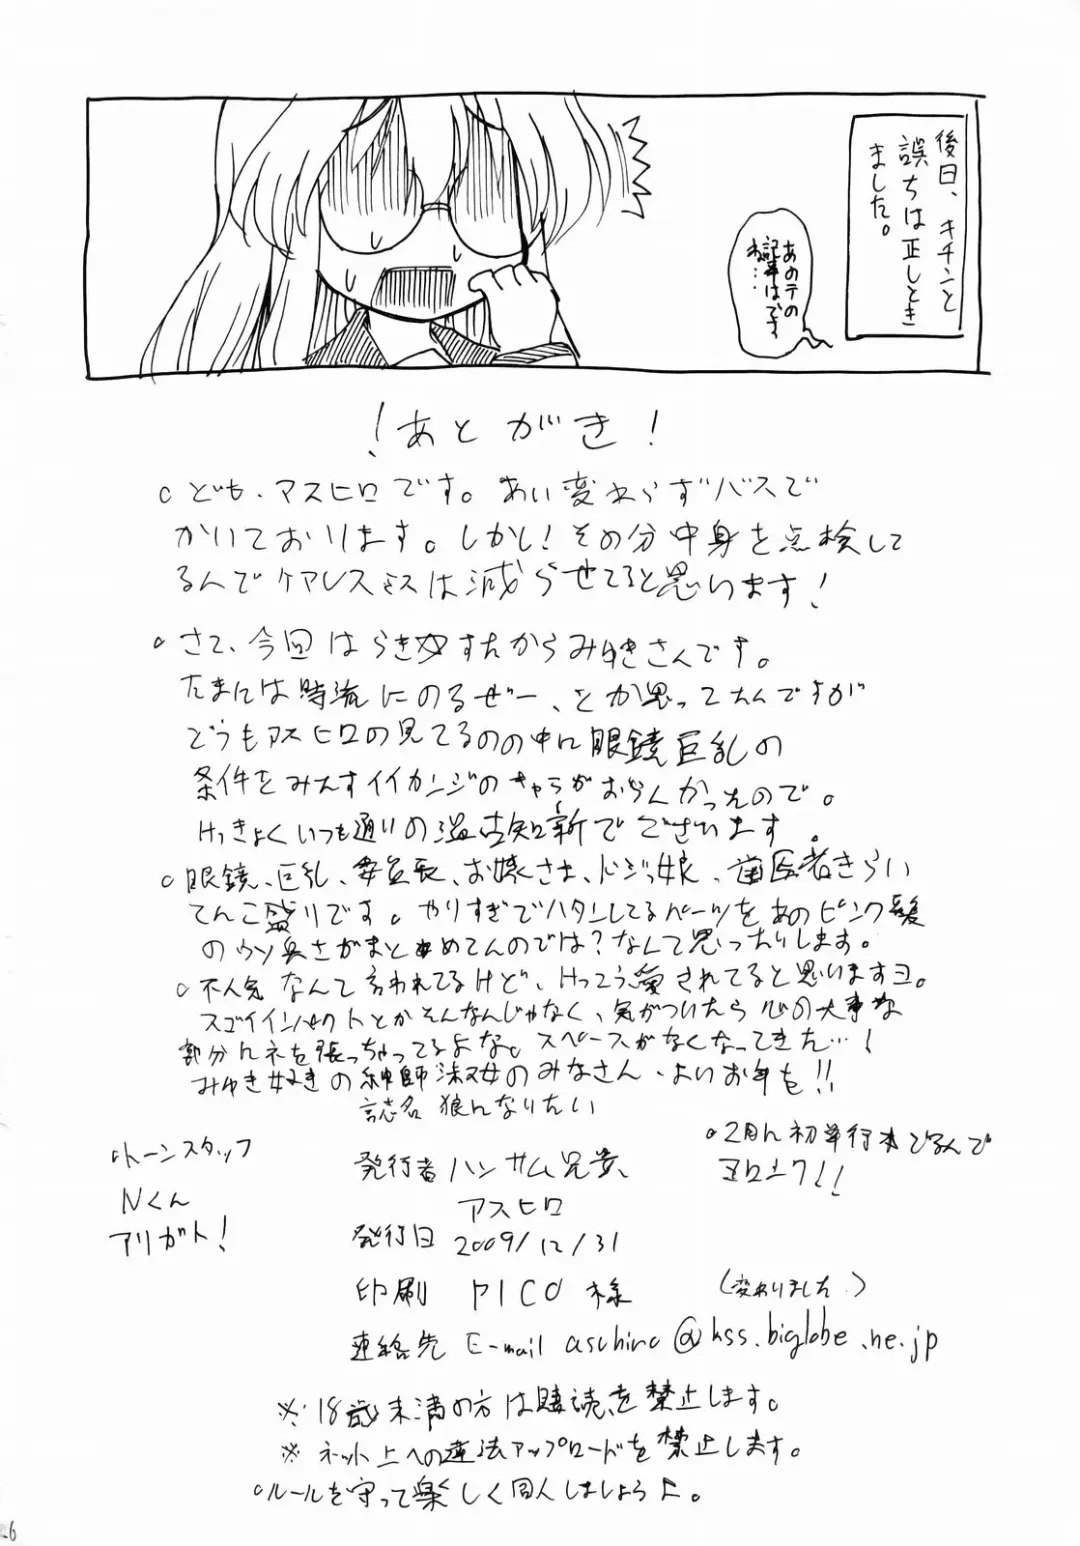 後日、キチンと
誤ちは正しとき
ました。
あのテの
記事はです
ね…
！あとがき！
○ども、アスヒロです。あい変わらずバスで
かいております。しかし！その分中身を点検して
るんでケアレスミスは減らせてると思います！
○さて、今回はらき☆すたからみゆきさんです。
たまには時流にのるぜー、とか思ってたんですが
どうもアスヒロの見てるのの中に眼鏡巨乳の
条件をみたすイイカンジのキャラがおらんかったので。
けっきょくいつも通りの温古知新でございます。
○眼鏡、巨乳、委員長、お嬢さま、ドジっ娘、歯医者きらい
てんこ盛りです。やりすぎでハタンしてるパーツをあのピンク髪
のウソ臭さがまとめてんのでは？なんて思ったりします。
○不人気なんて言われてるけど、けっこう愛されてると思いますヨ。
スゴイインパクトとかそんなんじゃなく、気がついたら心の大事な
部分に根を張っちゃってるよな。スペースがなくなってきた…！
みゆき好きの紳師淑女のみなさん、よいお年を!!
誌名 狼んなりたい
○トーンスタッフ
Nくん
アリガト！
発行者 ハンサム兄貴、
アスヒロ
発行日 2009/12/31
印刷 PICO様
○2月ん初単行本でるんで
ヨロシク!!
(変わりました。)
連絡先 E-mail aschiro@kss.biglobe.ne.jp
※18歳未満の方は購読を禁止します。
※ネット上への違法アップロードを禁止します。
○ルールを守って楽しく同人しましょうよ。